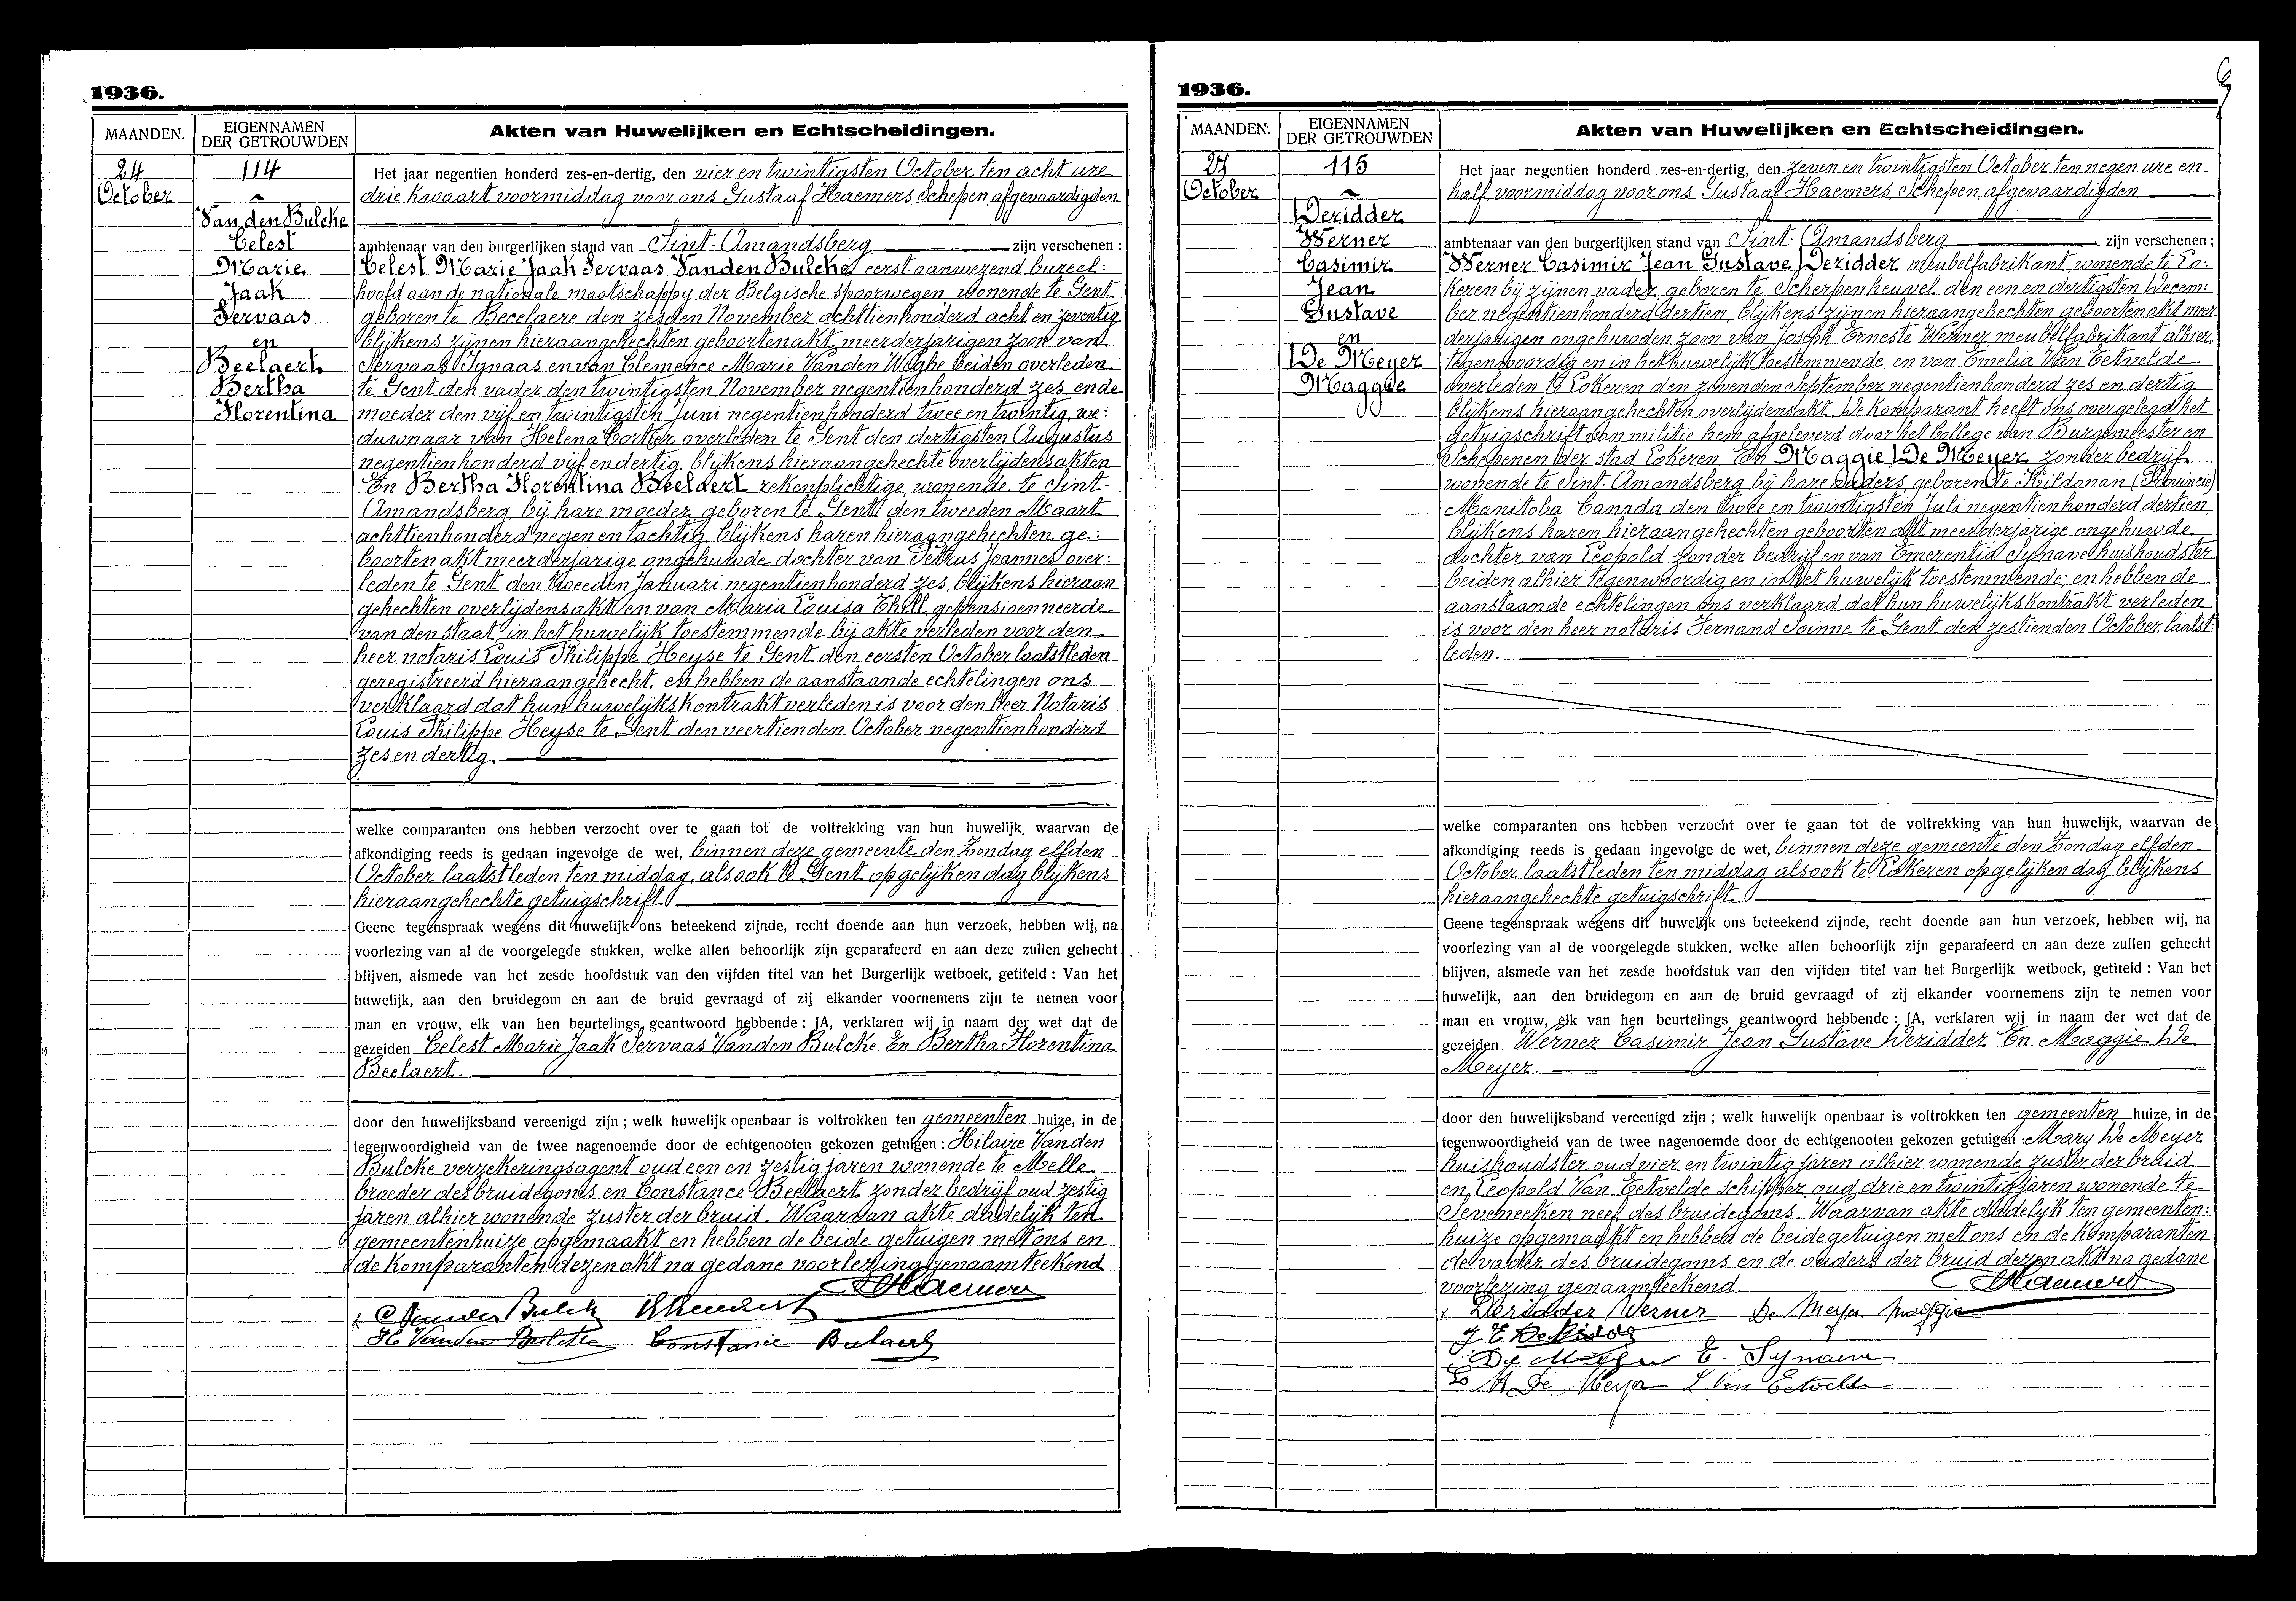 1936.
MAANDEN.
EIGENNAMEN
DER GETROUWDEN
Akten van Huwelijken en Echtscheidingen.
24
October
114
Van den Bulcke
Celest
Marie
Jaak
Servaas
en
Beelaert
Bertha
Florentina
Het jaar negentien honderd zes-en-dertig, den vier en twintigsten October ten acht ure
drie kwaart voormiddag voor ons Gustaaf Haemers Schepen, afgevaardigden
ambtenaar van den burgerlijken stand van Sint-Amandsberg zijn verschenen :
Celest Marie Jaak Servaas Vanden Bulcke, eerst aanwezend bureel:
hoofd aan de nationale maatschappy der Belgische spoorwegen, wonende te Gent
geboren te Becelaere den zesden November achttienhonderd acht en zeventig
blijkens zijnen hieraangehechten geboortenakt meerderjarigen zoon van
Servaas Ignaas en van Clemence Marie Vanden Weghe beiden overleden
te Gent den vader den twintigsten November negentienhonderd zes, en de
moeder den vijf en twintigsten Juni negentienhonderd twee en twintig, we:
duwnaar van Helena Cortier overleden te Gent den dertigsten Augustus
negentienhonderd vijf en dertig, blijkens hieraangehechte overlijdensakten
En Bertha Florentina Beelaert rekenplichtige, wonende te Sint-
Amandsberg, bij hare moeder, geboren te Gent den tweeden Maart
achttienhonderd negen en tachtig, blijkens haren hieraangehechten ge:
boortenakt meerderjarige ongehuwde dochter van Petrus Joannes over:
leden te Gent den tweeden Januari negentienhonderd zes, blijkens hieraan
gehechten overlijdensakt en van Maria Louisa Thell, gepensioenneerde
van den staat, in het huwelijk toestemmende bij akte verleden voor den
heer notaris Louis Philippe Heyse te Gent den eersten October laatstleden
geregistreerd hieraangehecht, en hebben de aanstaande echtelingen ons
verklaard dat hun huwelijkskontrakt verleden is voor den heer Notaris
Louis Philippe Heyse te Gent den veertienden October negentienhonderd
zes en dertig.
welke comparanten ons hebben verzocht over te gaan tot de voltrekking van hun huwelijk, waarvan de
afkondiging reeds is gedaan ingevolge de wet, binnen deze gemeente den Zondag elfden
October laatstleden ten middag, alsook te Gent op gelijken dag blijkens
hieraangehechte getuigschrift.
Geene tegenspraak wegens dit huwelijk ons beteekend zijnde, recht doende aan hun verzoek, hebben wij, na
voorlezing van al de voorgelegde stukken, welke allen behoorlijk zijn geparafeerd en aan deze zullen gehecht
blijven, alsmede van het zesde hoofdstuk van den vijfden titel van het Burgerlijk wetboek, getiteld : Van het
huwelijk, aan den bruidegom en aan de bruid gevraagd of zij elkander voornemens zijn te nemen voor
man en vrouw, elk van hen beurtelings geantwoord hebbende : JA, verklaren wij in naam der wet dat de
gezeiden Celest Marie Jaak Servaas Vanden Bulcke En Bertha Florentina
Beelaert.
door den huwelijksband vereenigd zijn ; welk huwelijk openbaar is voltrokken ten gemeenten huize, in de
tegenwoordigheid van de twee nagenoemde door de echtgenooten gekozen getuigen : Hilaire Vanden
Bulcke verzekeringsagent oud een en zestig jaren wonende te Melle
broeder des bruidegoms en Constance Beelaert zonder bedrijf oud zestig
jaren alhier wonende zuster der bruid. Waarvan akte dadelijk ten
gemeentenhuize opgemaakt en hebben de beide getuigen met ons en
de komparanten dezen akt na gedane voorlezing genaamteekend
GHaemers
C Vanden Bulcke
BBeelaert
H Vanden Bulcke
Constance Beelaert
1936.
MAANDEN.
EIGENNAMEN
DER GETROUWDEN
Akten van Huwelijken en Echtscheidingen.
27
October
115
Deridder
Werner
Casimir
Jean
Gustave
en
De Meyer
Maggie
Het jaar negentien honderd zes-en-dertig, den zeven en twintigsten October ten negen ure en
half voormiddag voor ons Gustaaf Haemers, Schepen, afgevaardigden
ambtenaar van den burgerlijken stand van Sint-Amandsberg zijn verschenen ;
Werner Casimir Jean Gustave Deridder meubelfabrikant, wonende te Lo:
keren bij zijnen vader, geboren te Scherpenheuvel den een en dertigsten Decem:
ber negentienhonderd dertien, blijkens zijnen hieraangehechten geboortenakt meer
derjarigen ongehuwden zoon van Joseph Ernest Werner meubelfabrikant alhier
tegenwoordig en in het huwelijk toestemmende, en van Emelia Van Eetvelde
overleden te Lokeren den zevenden September negentienhonderd zes en dertig
blijkens hieraangehechten overlijdensakt. De komparant heeft ons overgelegd het
getuigschrift van militie hem afgeleverd door het College van Burgemeester en
Schepenen der stad Lokeren En Maggie De Meyer zonder bedrijf
wonende te Sint-Amandsberg bij hare ouders, geboren te Kildonan (Provincie)
Manitoba Canada den twee en twintigsten Juli negentienhonderd dertien
blijkens haren hieraangehechten geboorten akt meerderjarige ongehuwde
dochter van Leopold zonder bedrijf en van Emerentia Synave huishoudster
beiden alhier tegenwoordig en in het huwelijk toestemmende; en hebben de
aanstaande echtelingen ons verklaard dat hun huwelijkskontrakt verleden
is voor den heer notaris Fernand Soinne te Gent den zestienden October laatst:
leden.
welke comparanten ons hebben verzocht over te gaan tot de voltrekking van hun huwelijk, waarvan de
afkondiging reeds is gedaan ingevolge de wet, binnen deze gemeente den Zondag elfden
October laatstleden ten middag alsook te Lokeren op gelijken dag blijkens
hieraangehechte getuigschrift.
Geene tegenspraak wegens dit huwelijk ons beteekend zijnde, recht doende aan hun verzoek, hebben wij, na
voorlezing van al de voorgelegde stukken, welke allen behoorlijk zijn geparafeerd en aan deze zullen gehecht
blijven, alsmede van het zesde hoofdstuk van den vijfden titel van het Burgerlijk wetboek, getiteld : Van het
huwelijk, aan den bruidegom en aan de bruid gevraagd of zij elkander voornemens zijn te nemen voor
man en vrouw, elk van hen beurtelings geantwoord hebbende : JA, verklaren wij in naam der wet dat de
gezeiden Werner Casimir Jean Gustave Deridder En Maggie De
Meyer.
door den huwelijksband vereenigd zijn ; welk huwelijk openbaar is voltrokken ten gemeenten huize, in de
tegenwoordigheid van de twee nagenoemde door de echtgenooten gekozen getuigen : Mary De Meyer
huishoudster oud vier en twintig jaren alhier wonende zuster der bruid
en Leopold Van Eetvelde schipper oud drie en twintig jaren wonende te
Seveneeken neef des bruidegoms. Waarvan akte dadelijk ten gemeenten:
huize opgemaakt en hebben de beide getuigen met ons en de komparanten
de vader des bruidegoms en de ouders der bruid dezen akt na gedane
voorlezing genaamteekend
GHaemers
Deridder Werner De Meyer Maggie
J. E. De Ridder
De Meyer E. Synave
M De Meyer L Van Eetvelde